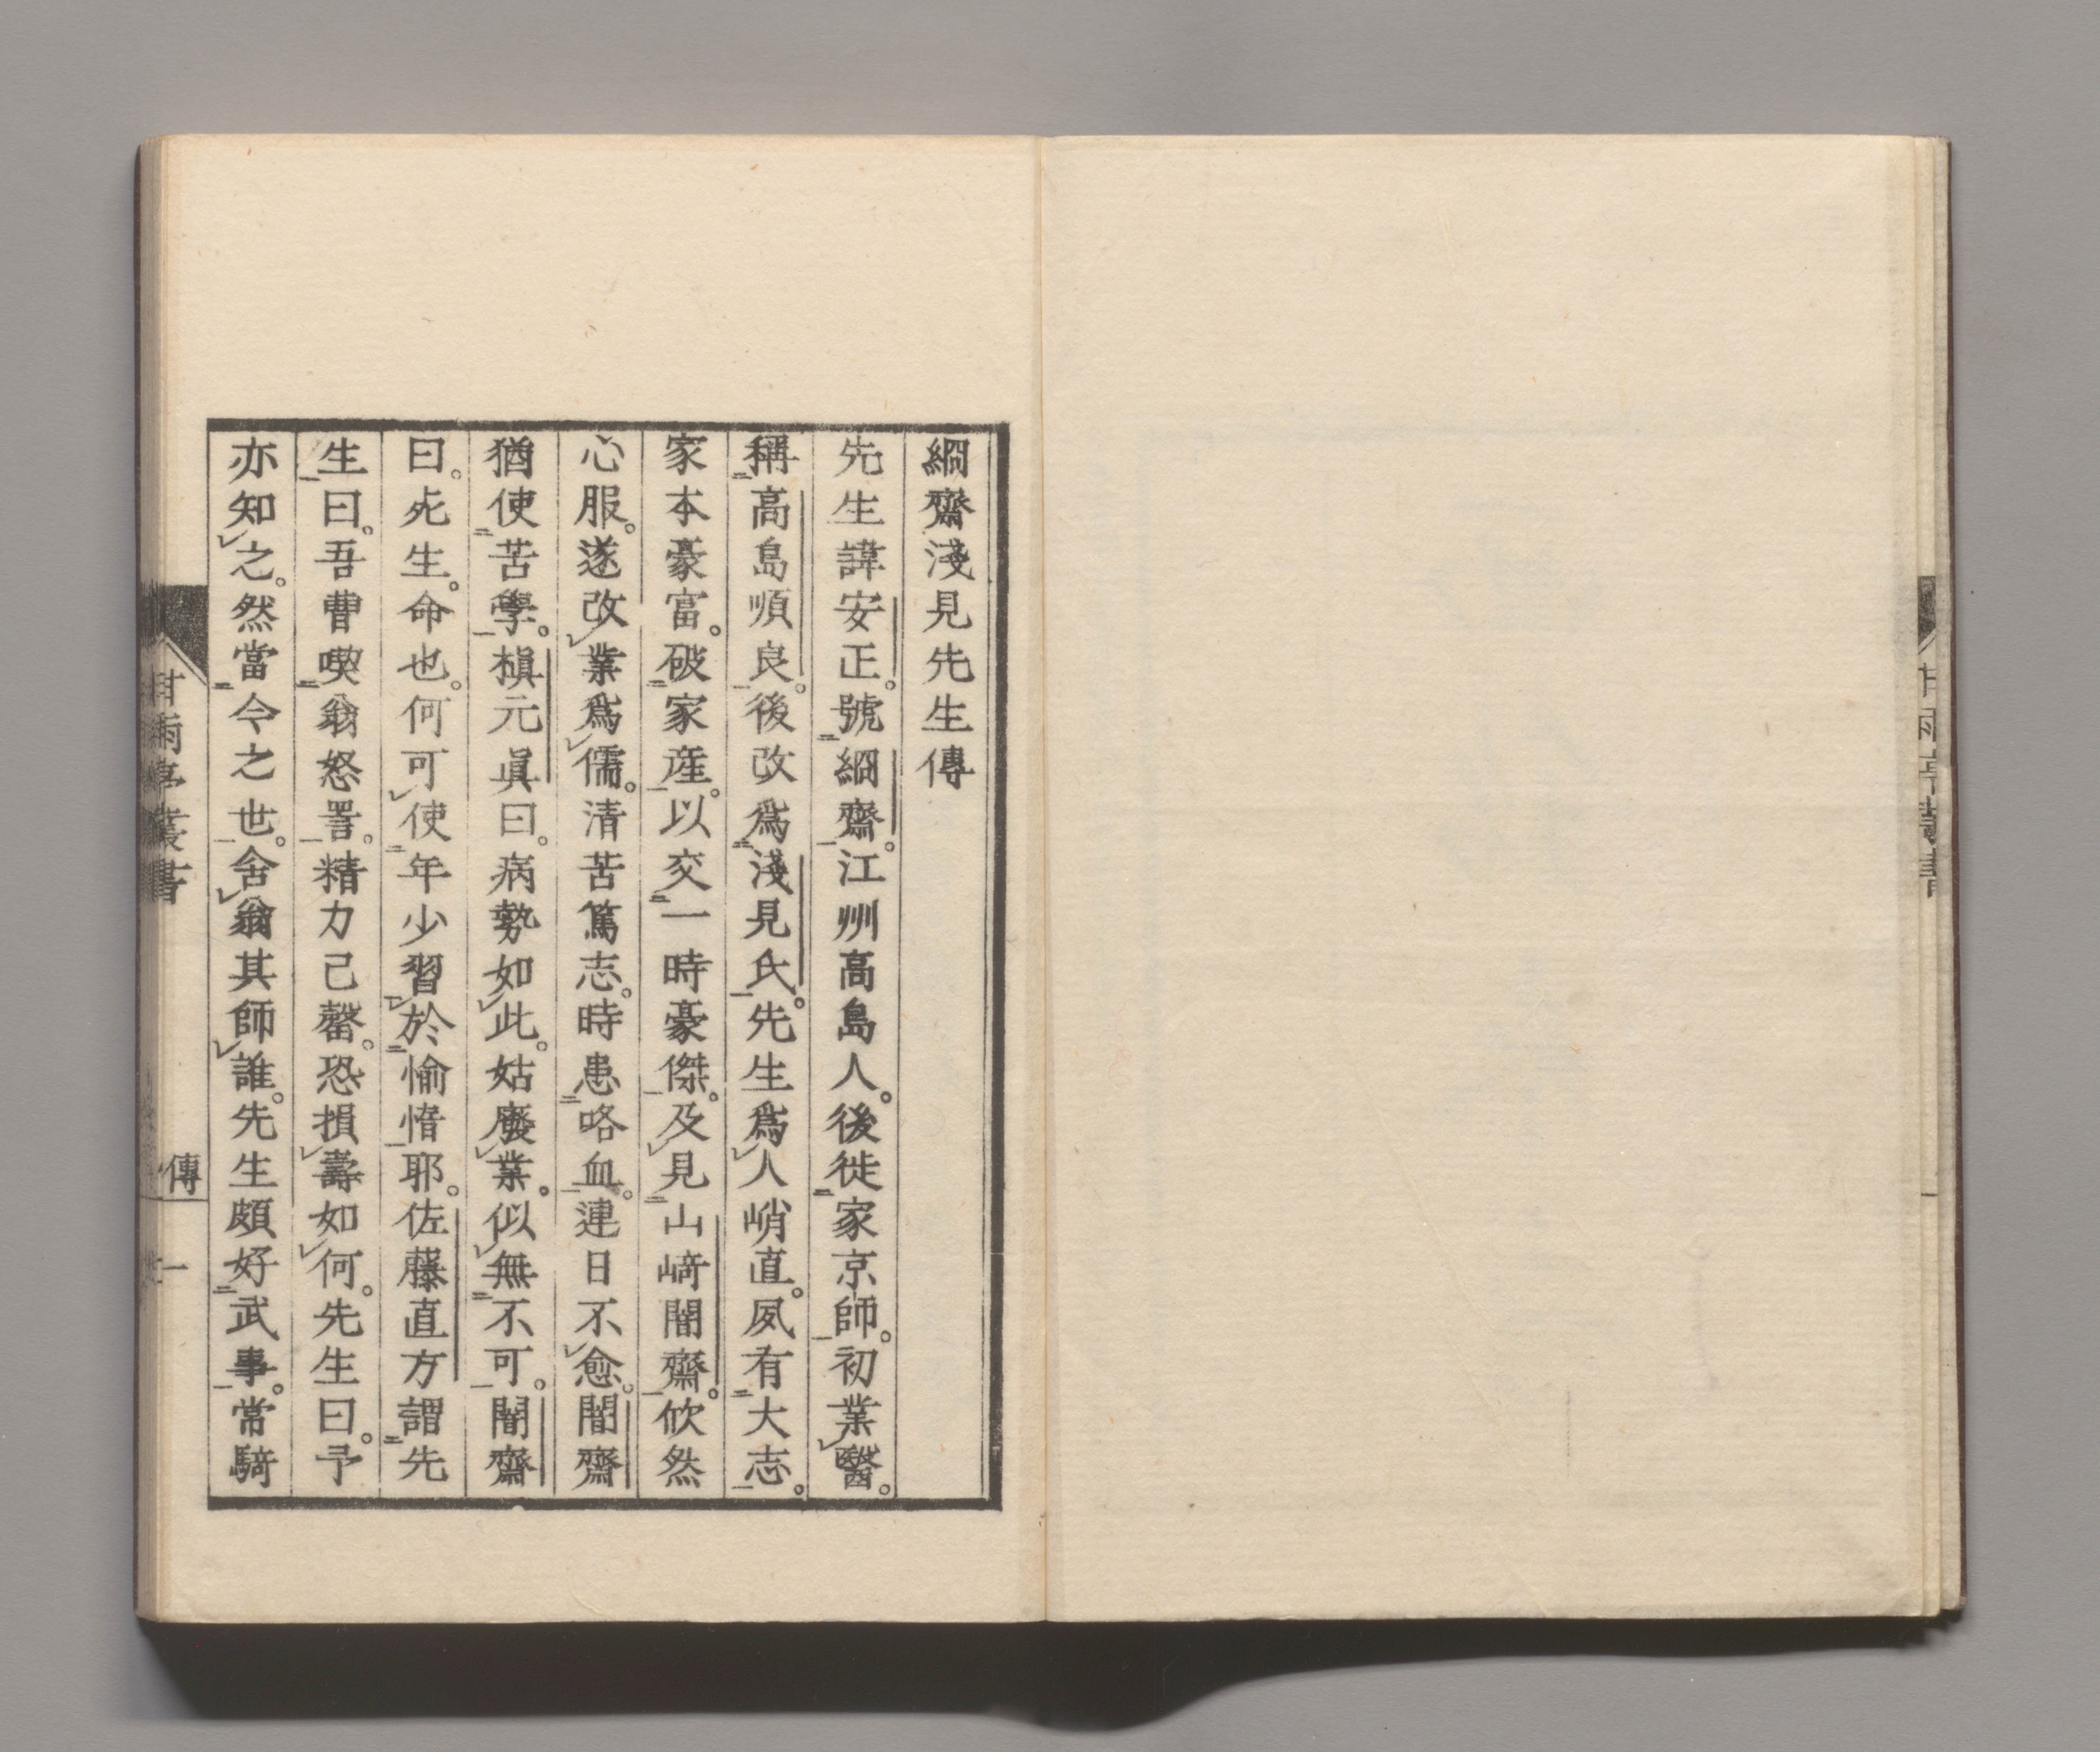 絅齋淺見先生傳
先生諱安正。號絅齋。江州高島人。後徙家京師。初業醫。
稱高島順良。後改爲淺見氏。先生爲人峭直。夙有大志。
家本豪富。破家產。以交一時豪傑。及見山﨑闇齋。欣然
心服。遂改業爲儒。清苦篤志。時患咯血。連日不愈。闇齋
猶使苦學。槇元眞曰。病勢如此。姑廢業。似無不可。闇齋
曰。死生。命也。何可使年少習於愉惰耶。佐藤直方謂先
生曰。吾曹喫翁怒詈。精力已罄。恐損壽如何。先生曰。予
亦知之。然當今之世。舍翁其師誰。先生頗好武事。常騎
甘雨亭叢書
傳
一
甘雨亭叢書